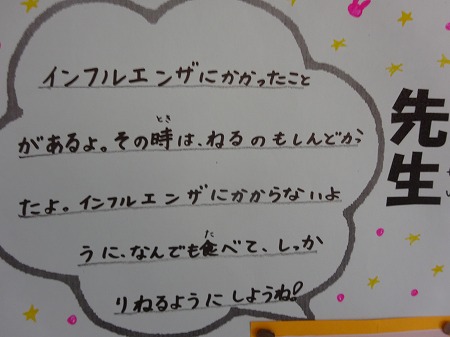 インフルエンザにかかったこと
があるよ。その時は、ねるのもしんどかっ
たよ。インフルエンザにかからないよ
うに、なんでも食べて、しっか
りねるようにしようね!
先生